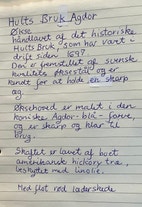 Hults Bruk Agdor
Økse
håndlavet af det historiske
Hults Bruk, som har været i
drift siden 1697
Den er fremstillet af svensk
kvalitets øksestål og er
kendt for at holde en skarp
æg.
Øksehoved er malet i den
ikoniske Agdor-blå-farve,
og er skarp og klar til
brug.
Skaftet er lavet af
amerikansk hickory træ,
beskyttet med linolie.
Med flot rød læderskede